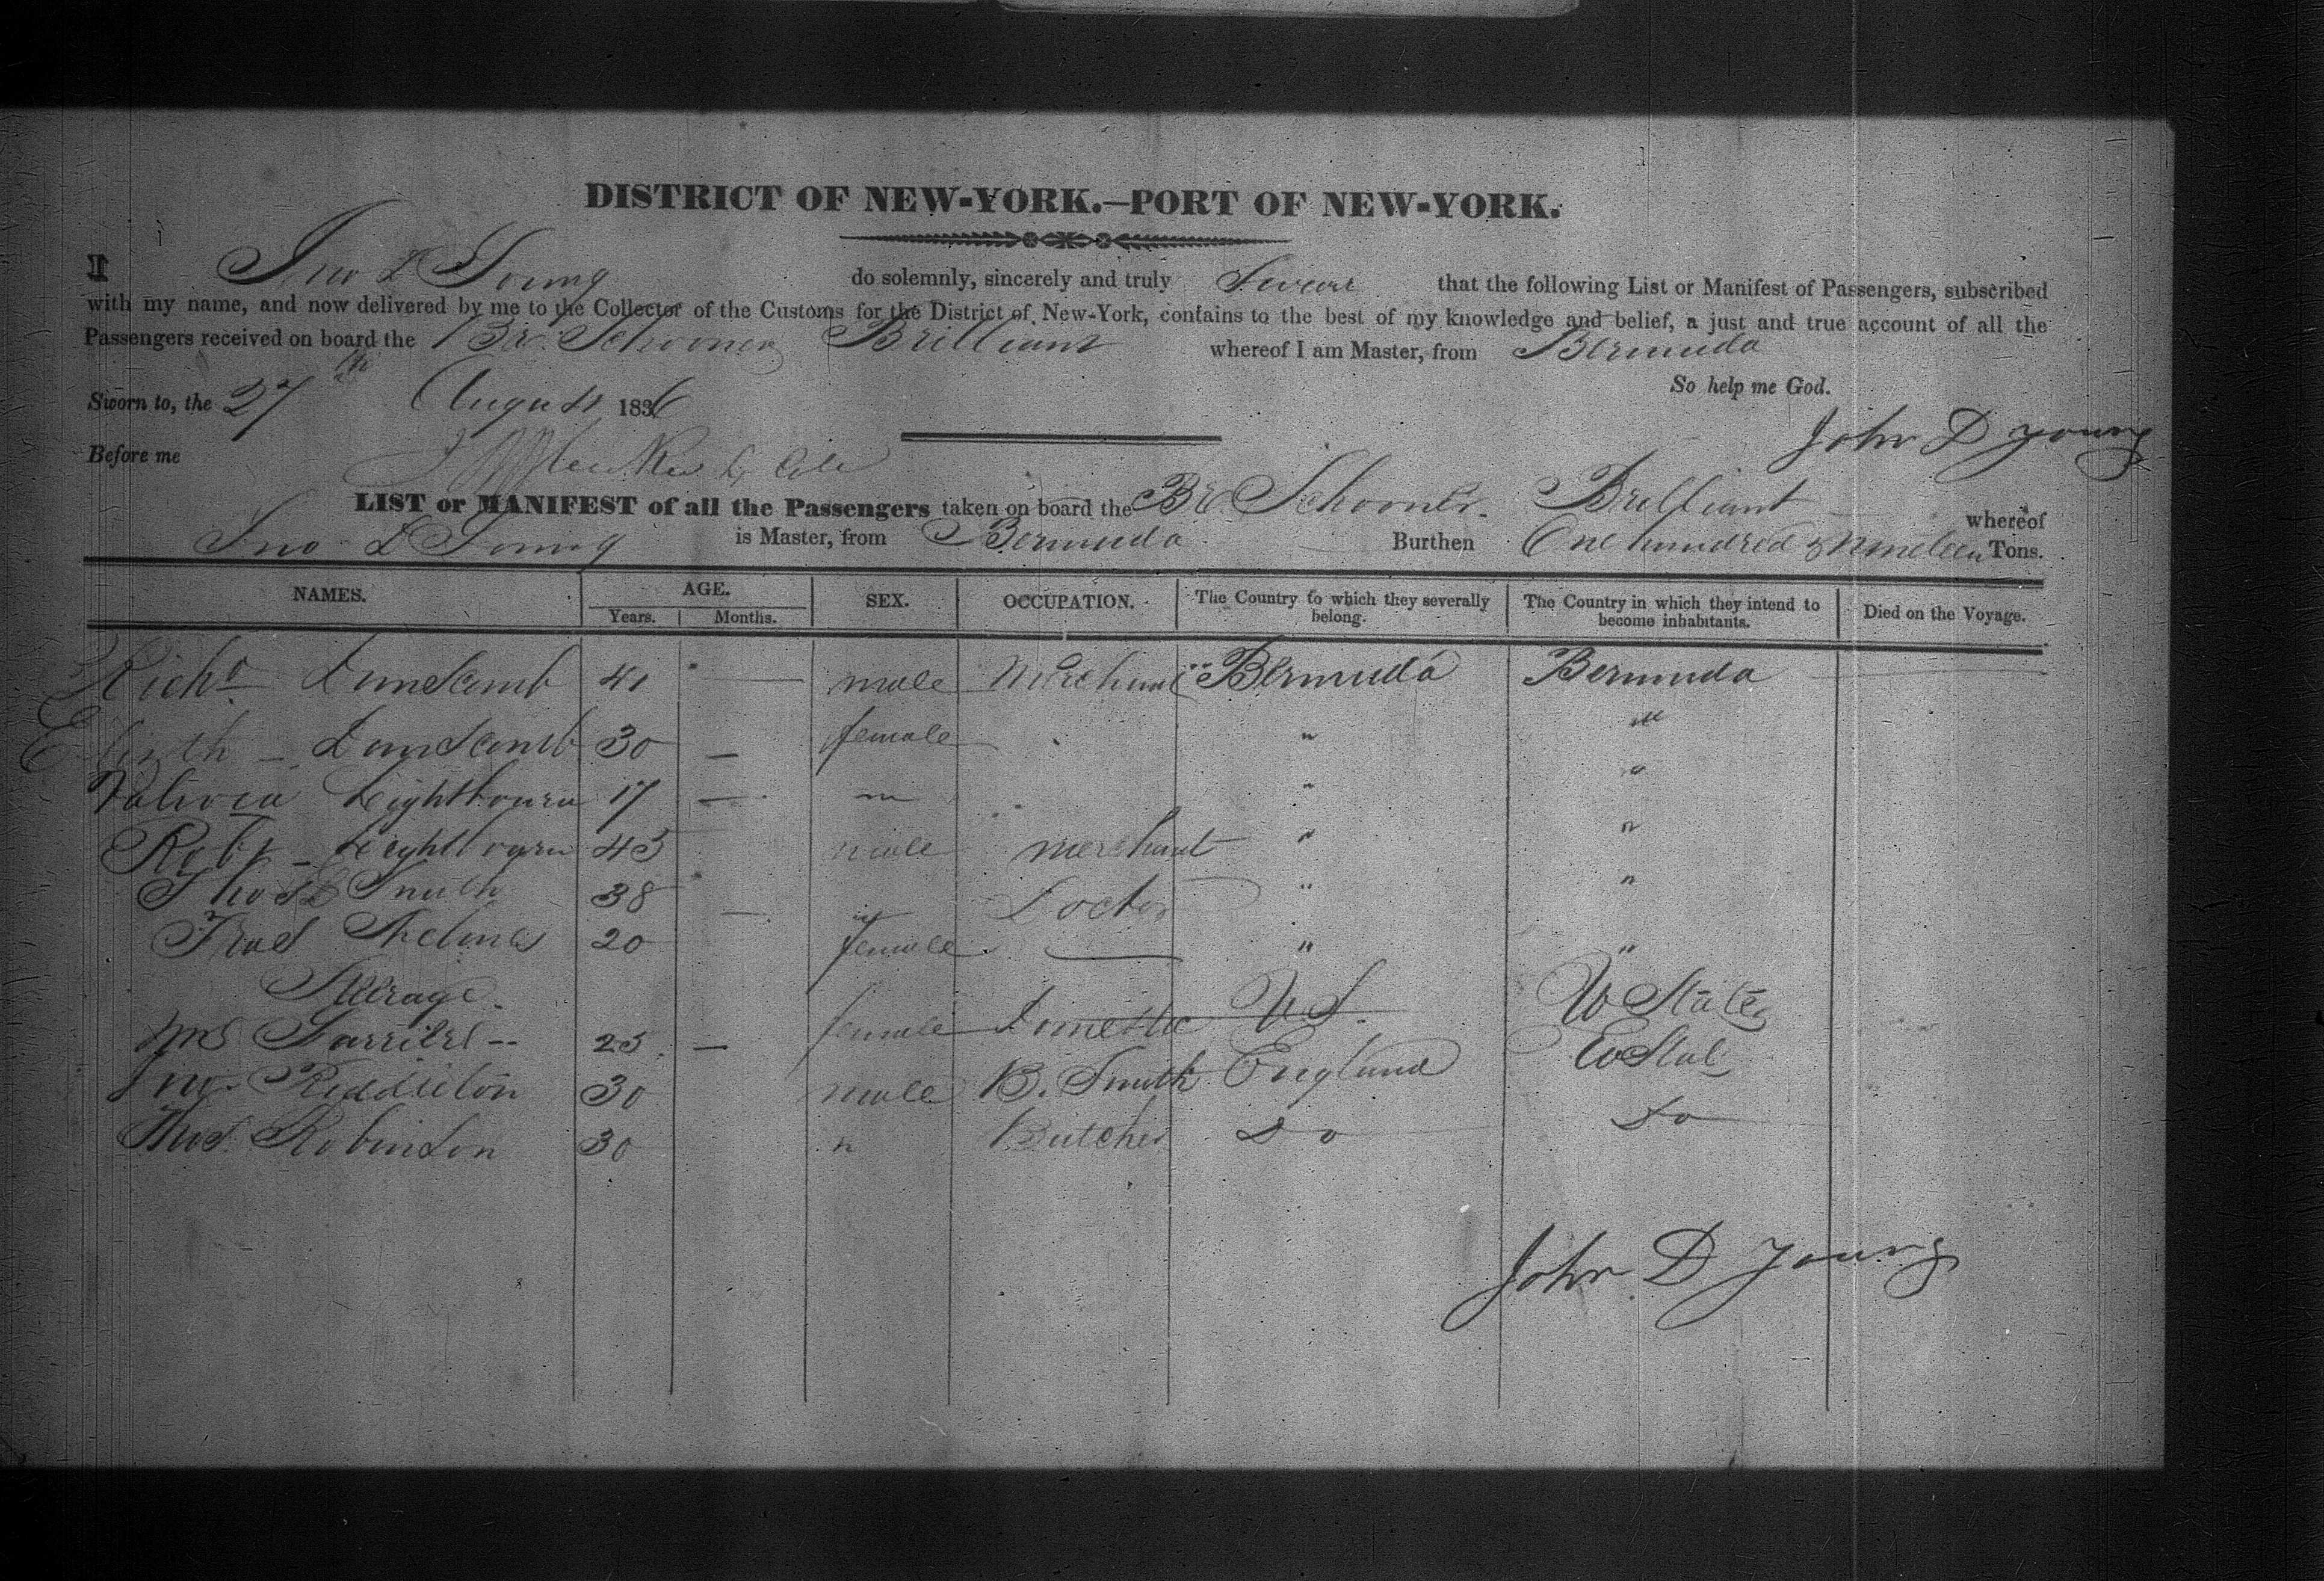 DISTRICT OF NEW-YORK.—PORT OF NEW-YORK.
I Jno D Young do solemnly, sincerely and truly Swear that the following List or Manifest of Passengers, subscribed
with my name, and now delivered by me to the Collector of the Customs for the District of New-York, contains to the best of my knowledge and belief, a just and true account of all the
Passengers received on board the Br. Schooner Brilliant whereof I am Master, from Bermuda
So help me God.
Sworn to, the 27th August 1836
John D Young
Before me
LIST or MANIFEST of all the Passengers taken on board the Br. Schooner Brilliant whereof
Jno D Young is Master, from Bermuda Burthen One hundred & nineteen Tons.
NAMES. AGE. SEX. OCCUPATION. The Country to which they severally belong. The Country in which they intend to become inhabitants. Died on the Voyage.
Years. Months.
Richd Dunscomb 41 — male Merchant Bermuda Bermuda
Dunscomb 30 — female " "
Lightbourn 17 — " " "
Robt Lightbourn 45 male merchant " "
Thos Smith 38 — " Doctor " "
20 female — " "
Steerage
Mrs 25 — female Domestic U.S. U States
Jno. 30 male B. Smith England U State
Thos. Robinson 30 " Butcher Do Do
John D Young